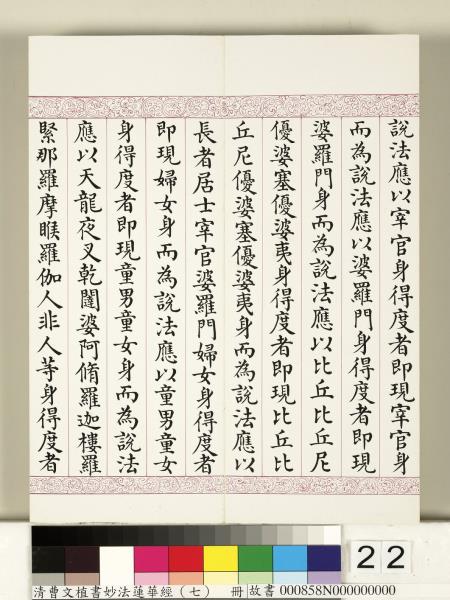 說法應以宰官身得度者即現宰官身
而為說法應以婆羅門身得度者即現
婆羅門身而為說法應以比丘比丘尼
優婆塞優婆夷身得度者即現比丘比
丘尼優婆塞優婆夷身而為說法應以
長者居士宰官婆羅門婦女身得度者
即現婦女身而為說法應以童男童女
身得度者即現童男童女身而為說法
應以天龍夜叉乾闥婆阿脩羅迦樓羅
緊那羅摩睺羅伽人非人等身得度者
22
清曹文植書妙法蓮華經（七） 冊 故書 000858N000000000